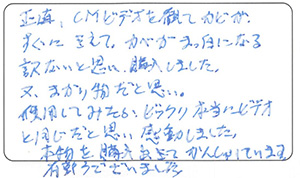 正直、CMビデオを観てカビが、
すぐに きえて、カベがまっ白になる
訳ないと思い、購入しました。
又、まがい物だと思い。
使用してみたら、ビックリ 本当にビデオ
と同じだと思い 感動しました。
本物を購入出来て かんしゃしています
有難うございました